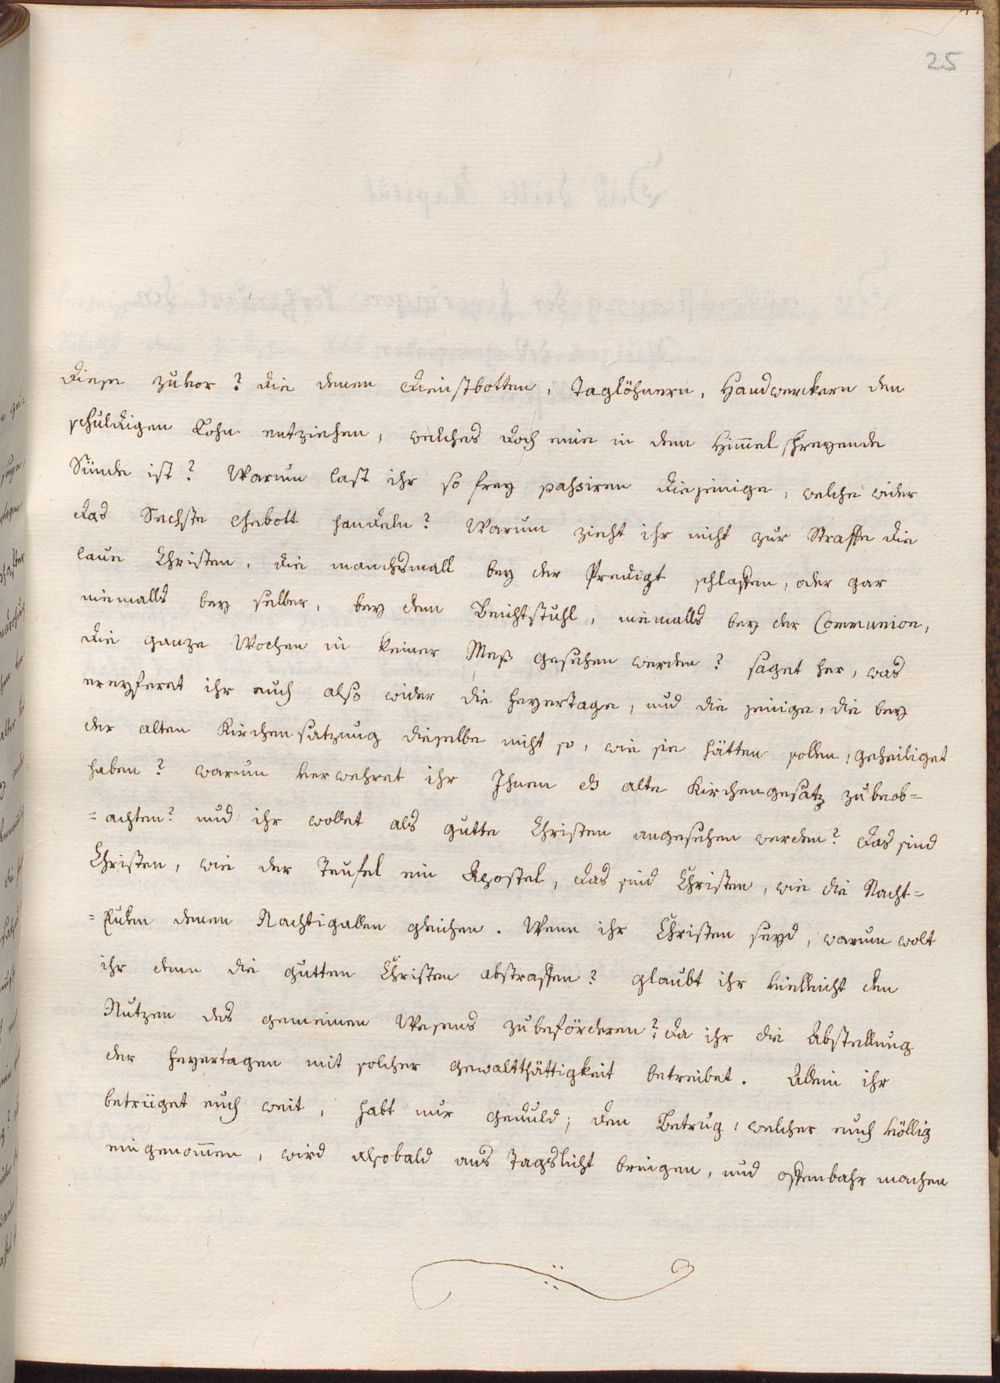 25
diese zuvor? die denen Dienstbotten, Taglöhnern, Handwerckern den
schuldigen Lohn entziehen, welches doch eine in dem Himmel schreyende
Sünde ist? Warum last ihr so frey passiren diejenige, welche wider
das Sechste Gebott handeln? Warum zieht ihr nicht zur Straffe die
laue Christen, die manchsmall bey der Predigt schlaffen, oder gar
niemalls bey selber, bey dem Beichtstuhl, niemalls bey der Communion,
die ganze Wochen in keiner Meß gesehen werden? saget her, was
ereyferet ihr euch also wider die feyertage, und die jenige, die bey
der alten Kirchensatzung dieselbe nicht so, wie sie hätten sollen, geheiliget
haben? warum verwehret ihr Ihnen das alte Kirchengesatz zu beob=
=achten? und ihr wollet als gutte Christen angesehen werden? das sind
Christen, wie der Teufel ein Apostel, das sind Christen, wie die Nacht=
=Eulen denen Nachtigallen gleichen. Wenn ihr Christen seyd, warum wolt
ihr denn die gutten Christen abstraffen? glaubt ihr vielleicht den
Nutzen des gemeinen Wesens zu beförderen? da ihr die Abstellung
der feyertagen mit solcher gewaltthättigkeit betreibet. Allein ihr
betrüget euch weit, habt nur geduld; den Betrug, welcher euch völlig
eingenom̅en, wird alsobald ans Tagslicht bringen, und offenbahr machen